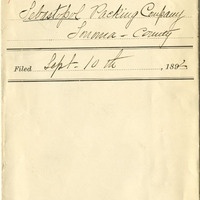 Sebastopol Packing Company
Sonoma - County
Filed Sept - 10 th , 189